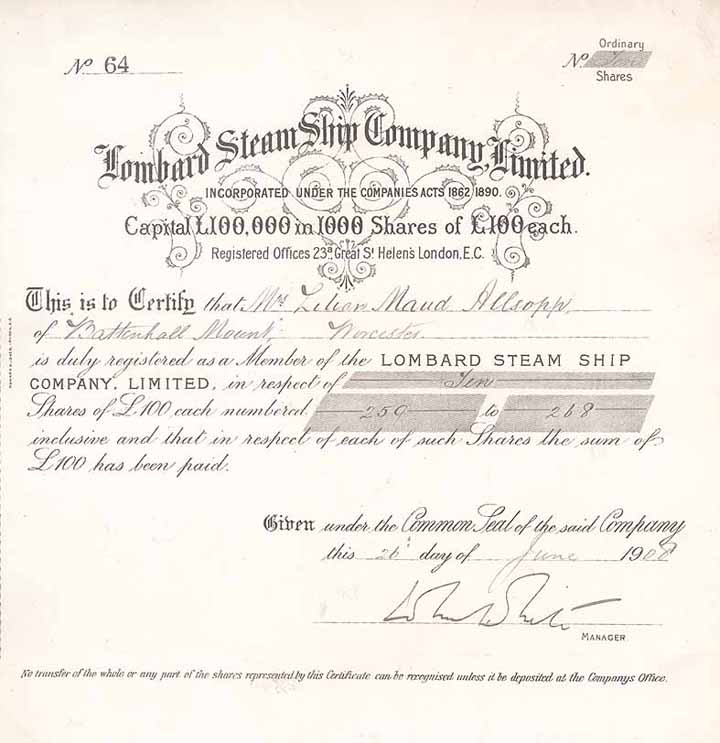 No 64
Ordinary
No Ten
Shares
Lombard Steam Ship Company, Limited.
INCORPORATED UNDER THE COMPANIES ACTS 1862/1890.
Capital £100,000 in 1000 Shares of £100 each.
Registered Offices 23a Great St Helen's London, E.C.
This is to Certify that Mrs Lilian Maud Allsopp
of Battenhall Mount Worcester
is duly registered as a Member of the LOMBARD STEAM SHIP
COMPANY, LIMITED, in respect of Ten
Shares of £100 each numbered 259 to 268
inclusive and that in respect of each of such Shares the sum of
£100 has been paid.
Given under the Common Seal of the said Company
this 26 day of June 1908
MANAGER
No transfer of the whole or any part of the shares represented by this Certificate can be recognised unless it be deposited at the Companys Office.